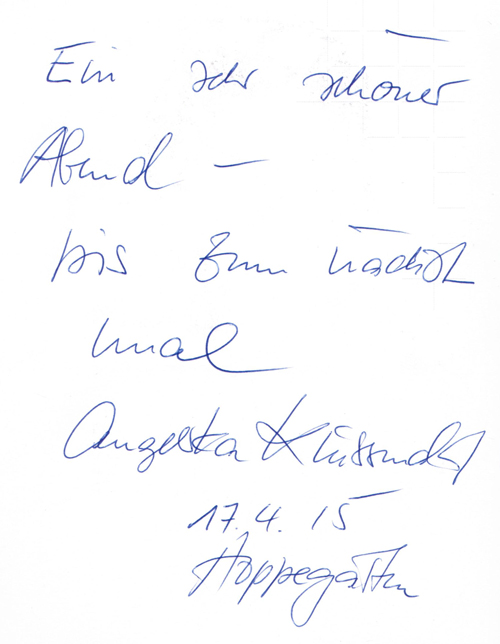 Ein sehr schöner
Abend –
bis zum nächst
mal
Angelika Klüssendorf
17.4.15
Hoppegarten